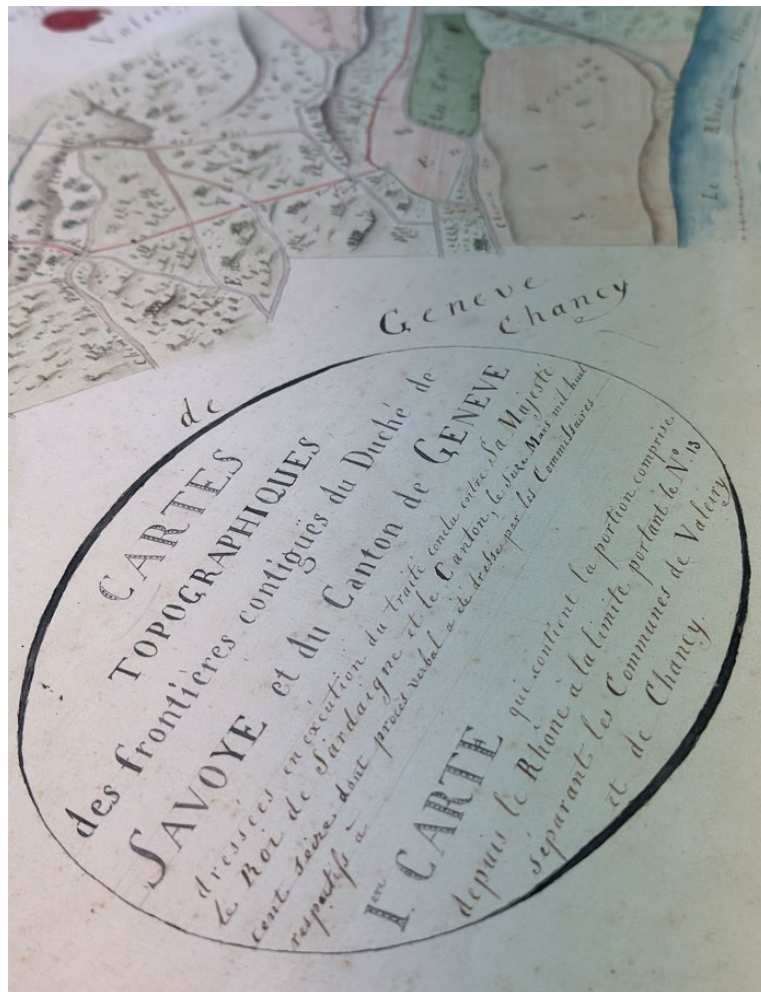 Valeiry
Le Rhône
de Geneve
Chancy
CARTES
TOPOGRAPHIQUES
des frontières contiguës du Duché de
SAVOYE et du Canton de GENEVE
dressées en exécution du traité conclu entre Sa Majesté
le Roi de Sardaigne et le Canton, le seize Mars mil huit
cent seize dont procès verbal a été dressé par les Commissaires
respectifs à
Iere CARTE qui contient la portion comprise
depuis le Rhône à la limite portant le No. 13
séparant les Communes de Valeiry
et de Chancy.